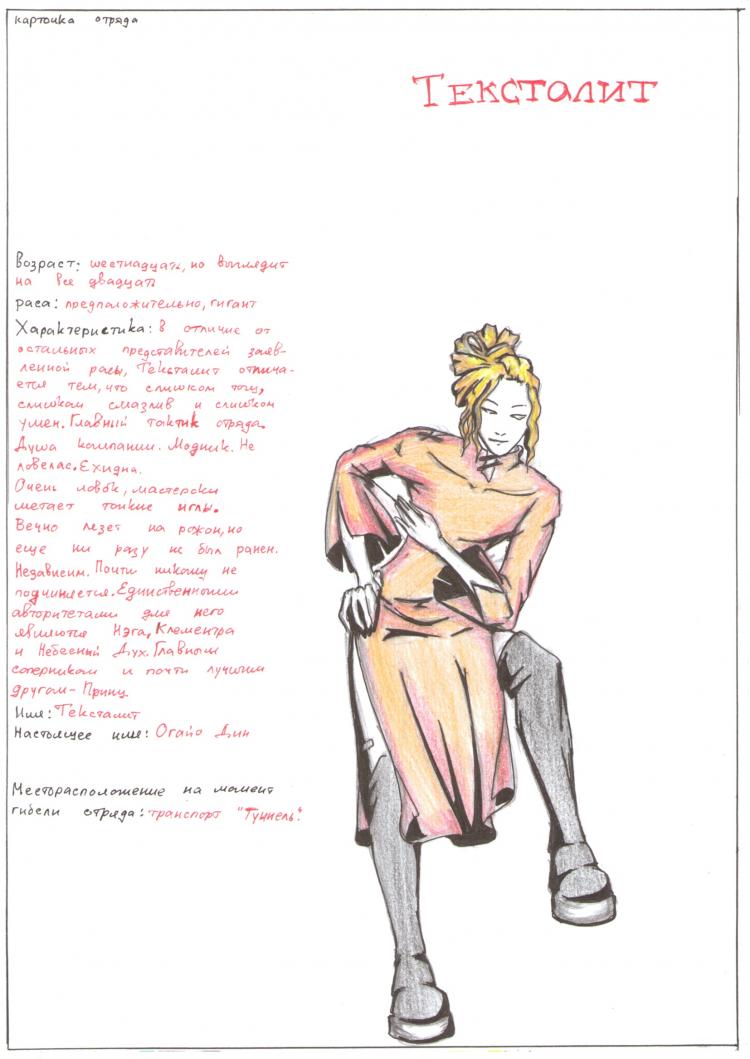 карточка отряда
Текстолит
Возраст: шестнадцать, но выглядит
на все двадцать
раса: предположительно, гигант
Характеристика: в отличие от
остальных представителей заяв-
ленной расы, Текстолит отлича-
ется тем, что слишком тощ,
слишком смазлив и слишком
умен. Главный тактик отряда.
Душа компании. Модник. Не
ловелас. Ехидна.
Очень ловок, мастерски
метает тонкие иглы.
Вечно лезет на рожон, но
еще ни разу не был ранен.
Независим. Почти никому не
подчиняется. Единственными
авторитетами для него
являются Нэга, Клементра
и Небесный Дух. Главным
соперником и почти лучшим
другом - Принц
Имя: Текстолит
Настоящее имя: Огайо Дин
Месторасположение на момент
гибели отряда: транспорт "Туннель".